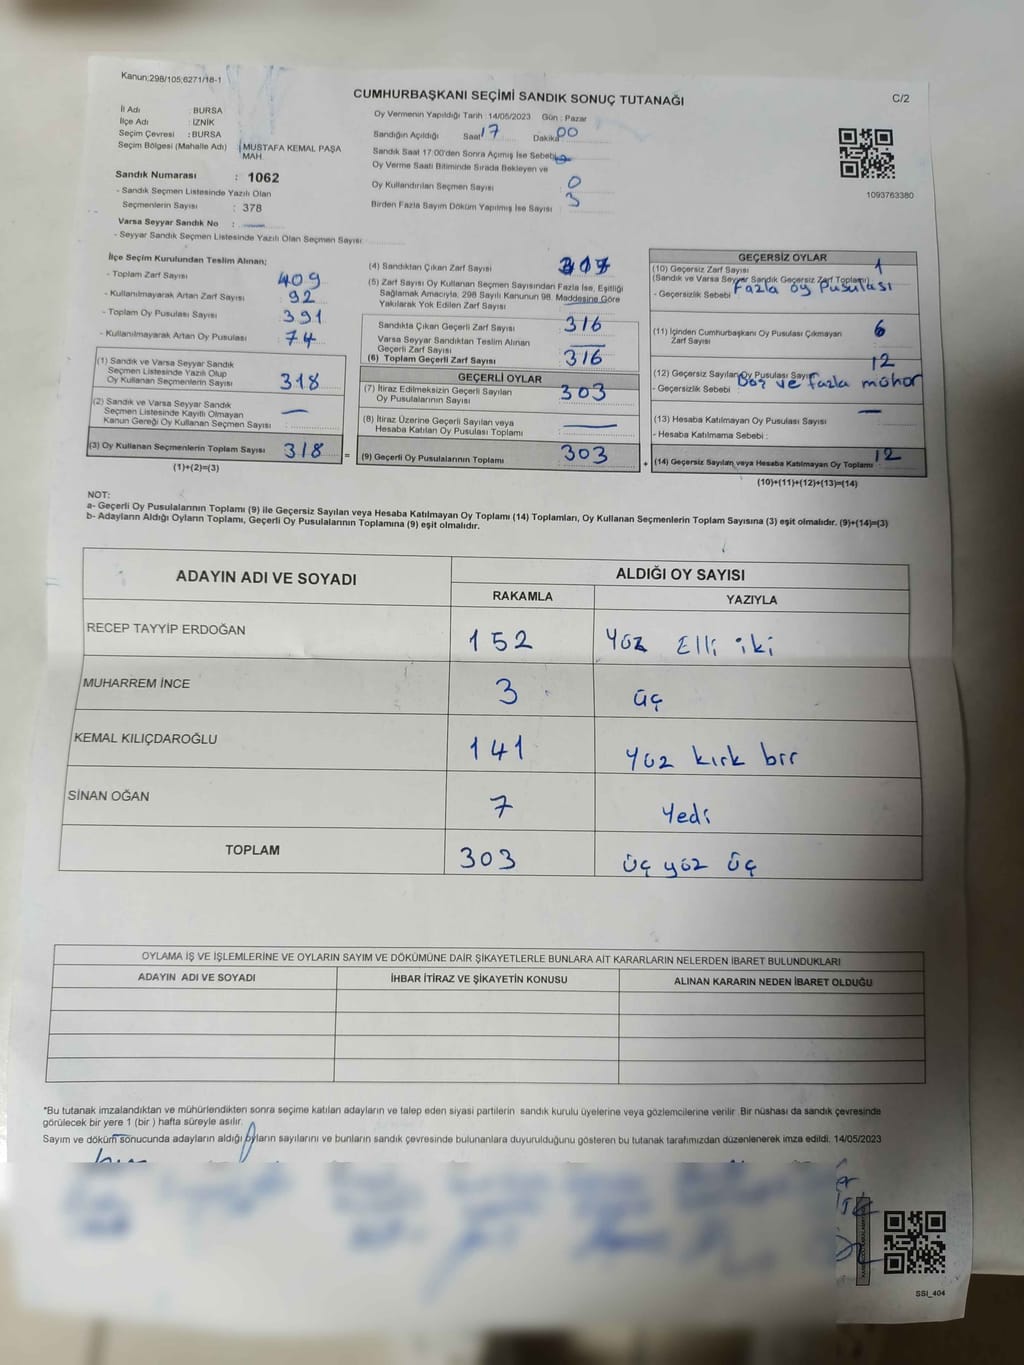 Kanun:298/105;6271/18-1
CUMHURBAŞKANI SEÇİMİ SANDIK SONUÇ TUTANAĞI
C/2
İl Adı : BURSA
İlçe Adı : İZNİK
Seçim Çevresi : BURSA
Seçim Bölgesi (Mahalle Adı) : MUSTAFA KEMAL PAŞA
MAH.
Sandık Numarası : 1062
- Sandık Seçmen Listesinde Yazılı Olan
Seçmenlerin Sayısı : 378
Varsa Seyyar Sandık No : —
- Seyyar Sandık Seçmen Listesinde Yazılı Olan Seçmen Sayısı:
Oy Vermenin Yapıldığı Tarih :14/05/2023 Gün : Pazar
Sandığın Açıldığı Saat 17 Dakika 00
Sandık Saat 17:00'den Sonra Açımış İse Sebebi
Oy Verme Saati Bitiminde Sırada Bekleyen ve
Oy Kullandırılan Seçmen Sayısı : 0
Birden Fazla Sayım Döküm Yapılmış İse Sayısı : 3
1093763380
İlçe Seçim Kurulundan Teslim Alınan;
- Toplam Zarf Sayısı : 409
- Kullanılmayarak Artan Zarf Sayısı : 92
- Toplam Oy Pusulası Sayısı : 391
- Kullanılmayarak Artan Oy Pusulası : 74
(1) Sandık ve Varsa Seyyar Sandık
Seçmen Listesinde Yazılı Olup
Oy Kullanan Seçmenlerin Sayısı : 318
(2) Sandık ve Varsa Seyyar Sandık
Seçmen Listesinde Kayıtlı Olmayan
Kanun Gereği Oy Kullanan Seçmen Sayısı : —
(3) Oy Kullanan Seçmenlerin Toplam Sayısı : 318
(1)+(2)=(3)
=
(4) Sandıktan Çıkan Zarf Sayısı :
(5) Zarf Sayısı Oy Kullanan Seçmen Sayısından Fazla İse, Eşitliği
Sağlamak Amacıyla, 298 Sayılı Kanunun 98. Maddesine Göre
Yakılarak Yok Edilen Zarf Sayısı : —
Sandıkta Çıkan Geçerli Zarf Sayısı : 316
Varsa Seyyar Sandıktan Teslim Alınan
Geçerli Zarf Sayısı : —
(6) Toplam Geçerli Zarf Sayısı : 316
GEÇERLİ OYLAR
(7) İtiraz Edilmeksizin Geçerli Sayılan
Oy Pusulalarının Sayısı : 303
(8) İtiraz Üzerine Geçerli Sayılan veya
Hesaba Katılan Oy Pusulası Toplamı : —
(9) Geçerli Oy Pusulalarının Toplamı : 303
+
GEÇERSİZ OYLAR
(10) Geçersiz Zarf Sayısı 1
(Sandık ve Varsa Seyyar Sandık Geçersiz Zarf Toplamı)
- Geçersizlik Sebebi : Fazla oy Pusulası
(11) İçinden Cumhurbaşkanı Oy Pusulası Çıkmayan
Zarf Sayısı : 6
(12) Geçersiz Sayılan Oy Pusulası Sayısı 12
- Geçersizlik Sebebi : Boş ve fazla mühür
(13) Hesaba Katılmayan Oy Pusulası Sayısı —
- Hesaba Katılmama Sebebi :
(14) Geçersiz Sayılan veya Hesaba Katılmayan Oy Toplamı : 12
(10)+(11)+(12)+(13)=(14)
NOT:
a- Geçerli Oy Pusulalarının Toplamı (9) ile Geçersiz Sayılan veya Hesaba Katılmayan Oy Toplamı (14) Toplamları, Oy Kullanan Seçmenlerin Toplam Sayısına (3) eşit olmalıdır. (9)+(14)=(3)
b- Adayların Aldığı Oyların Toplamı, Geçerli Oy Pusulalarının Toplamına (9) eşit olmalıdır.
ADAYIN ADI VE SOYADI
ALDIĞI OY SAYISI
RAKAMLA YAZIYLA
RECEP TAYYİP ERDOĞAN 152 Yüz Elli iki
MUHARREM İNCE 3 üç
KEMAL KILIÇDAROĞLU 141 yüz kırk bir
SİNAN OĞAN 7 Yedi
TOPLAM 303 üç yüz üç
OYLAMA İŞ VE İŞLEMLERİNE VE OYLARIN SAYIM VE DÖKÜMÜNE DAİR ŞİKAYETLERLE BUNLARA AİT KARARLARIN NELERDEN İBARET BULUNDUKLARI
ADAYIN ADI VE SOYADI İHBAR İTİRAZ VE ŞİKAYETİN KONUSU ALINAN KARARIN NEDEN İBARET OLDUĞU
*Bu tutanak imzalandıktan ve mühürlendikten sonra seçime katılan adayların ve talep eden siyasi partilerin sandık kurulu üyelerine veya gözlemcilerine verilir .Bir nüshası da sandık çevresinde
görülecek bir yere 1 (bir ) hafta süreyle asılır.
Sayım ve döküm sonucunda adayların aldığı oyların sayılarını ve bunların sandık çevresinde bulunanlara duyurulduğunu gösteren bu tutanak tarafımızdan düzenlenerek imza edildi. 14/05/2023
SSI_404